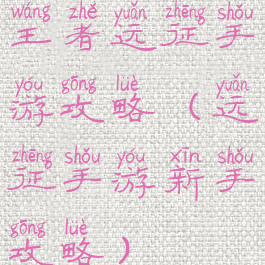 wáng zhě yuǎn zhēng shǒu
王者远征手
yóu gōng lüè yuǎn
游攻略（远
zhēng shǒu yóu xīn shǒu
征手游新手
gōng lüè
攻略）